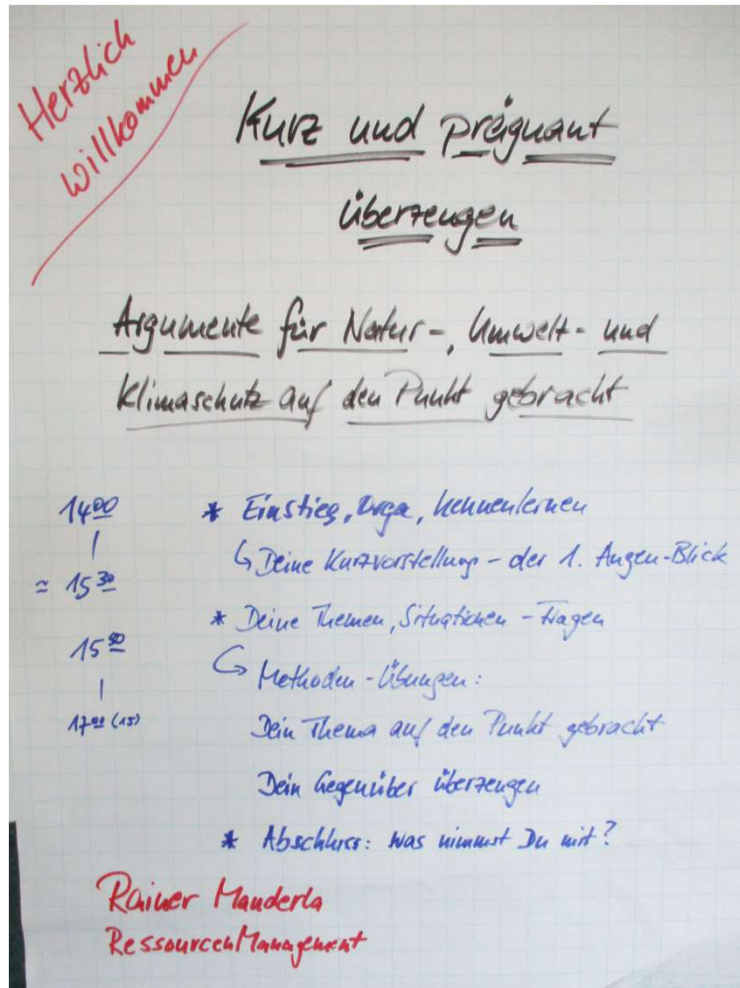 Herzlich
willkommen
Kurz und prägnant
überzeugen
Argumente für Natur-, Umwelt- und
Klimaschutz auf den Punkt gebracht
14 00 * Einstieg, Orga, kennenlernen
| ↳ Deine Kurzvorstellung - der 1. Augen-Blick
≈ 15 30 * Deine Themen, Situationen - Fragen
15 ↳ Methoden-Übungen:
|
17 00 (15) Dein Thema auf den Punkt gebracht
Dein Gegenüber überzeugen
* Abschluss: Was nimmst Du mit?
Rainer Manderla
RessourcenManagement